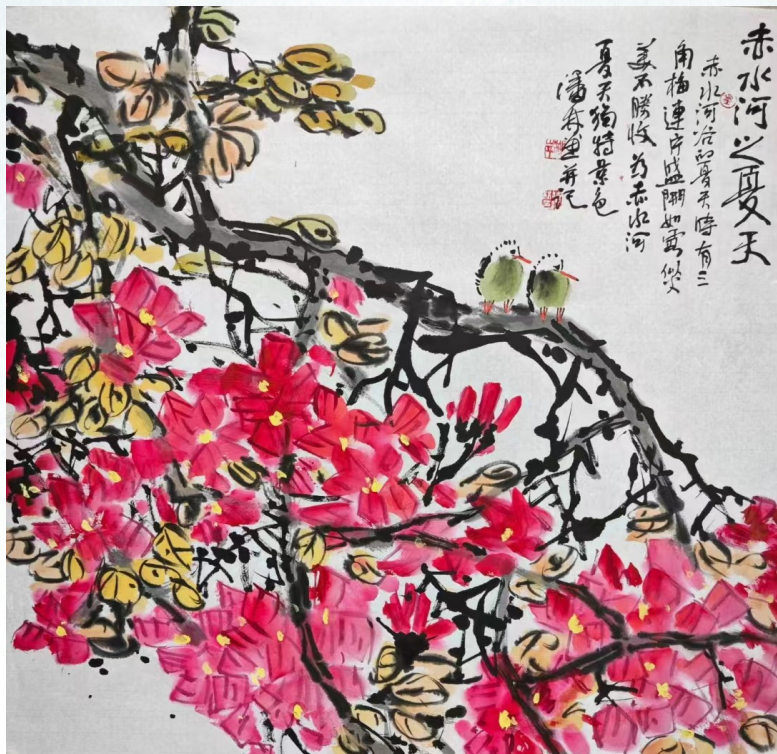 赤水河之夏天
赤水河谷的夏天時有三
角梅連片盛開如雲似火
美不勝收為赤水河
夏天獨特景色
潘林畫并記